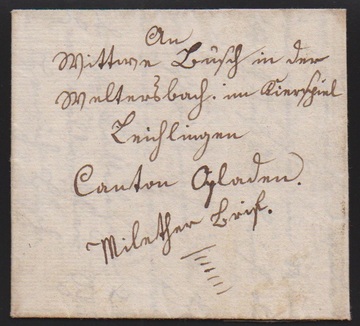 An
Wittwe Büsch in der
Weltersbach. im Kierspiel
Leichlingen
Canton Opladen.
Milether Brif.